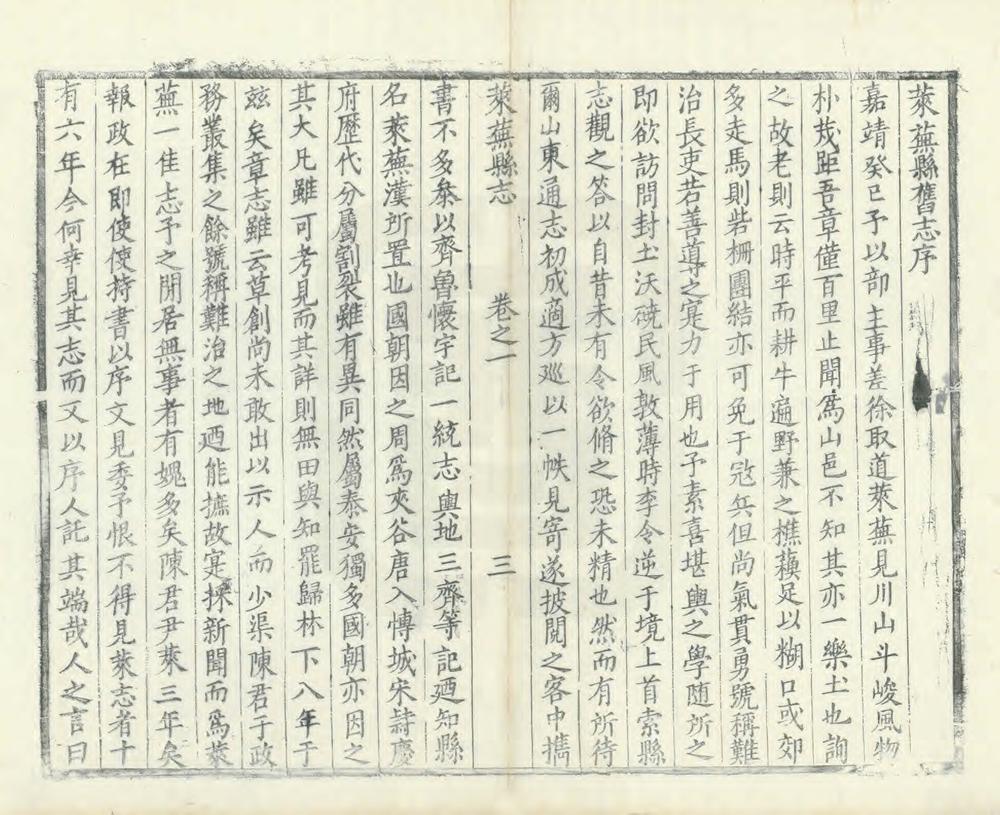 萊蕪縣舊志序
嘉靖癸巳予以部主事差徐取道萊蕪見川山斗峻風物
朴茂距吾章僅百里止聞為山邑不知其亦一樂土也詢
之故老則云時平而耕牛遍野兼之樵蘓足以糊口或郊
多走馬則砦柵團結亦可免于寇兵但尚氣貫勇號稱難
治長吏若善導之寔力于用也予素喜堪輿之學随所之
即欲訪問封土沃磽民風敦薄時李令逆于境上首索縣
志觀之答以自昔未有令欲脩之恐未精也然而有所待
爾山東通志初成適方巡以一帙見寄遂披閱之客中擕
萊蕪縣志 卷之一 三
書不多叅以齊魯懷宇記一統志輿地三齊等記廼知縣
名萊蕪漢所置也國朝因之周為夾谷唐入愽城宋隷慶
府歷代分屬割裂雖有異同然屬泰安獨多國朝亦因之
其大凡雖可考見而其詳則無田與知罷歸林下八年于
玆矣章志雖云草創尚未敢出以示人而少渠陳君于政
務叢集之餘號稱難治之地廼能摭故寔採新聞而為萊
蕪一佳志予之閒居無事者有媿多矣陳君尹萊三年矣
報政在即使使持書以序文見委予恨不得見萊志者十
有六年今何幸見其志而又以序人託其端哉人之言曰